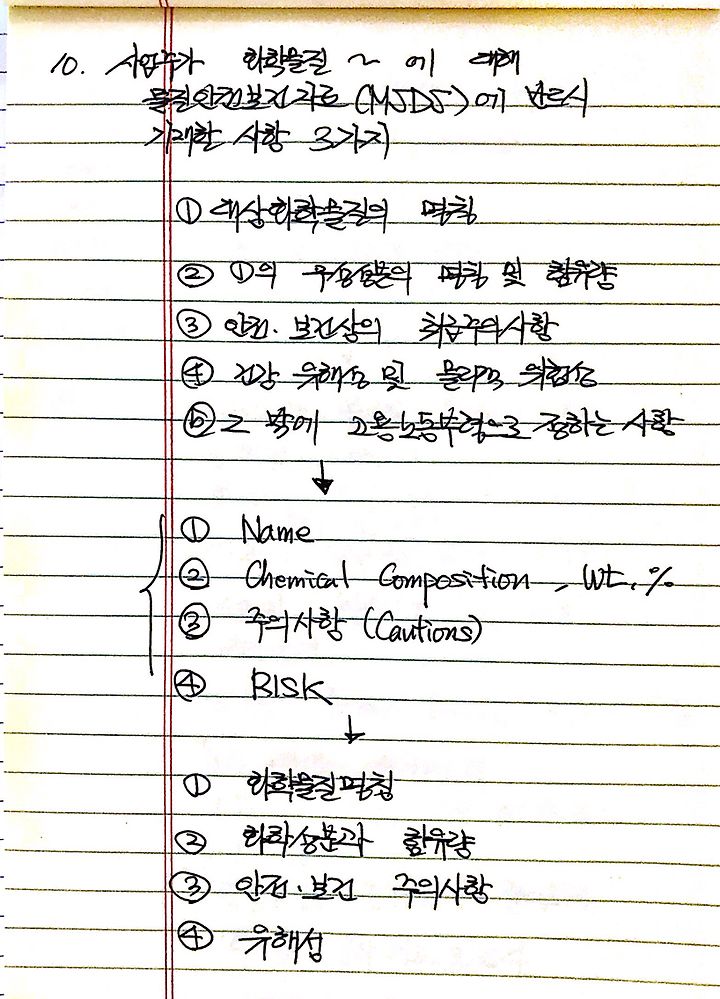 10. 사업주가 화학물질 ~ 에 대해
물질안전보건자료(MSDS)에 반드시
기재할 사항 3가지
① 대상화학물질의 명칭
② ①의 구성성분의 명칭 및 함유량
③ 안전·보건상의 취급주의사항
④ 건강 유해성 및 물리적 위험성
⑤ 그 밖에 고용노동부령으로 정하는 사항
↓
① Name
② Chemical Composition, Wt.%
③ 주의사항 (Cautions)
④ RISK
↓
① 화학물질명칭
② 화학성분과 함유량
③ 안전·보건 주의사항
④ 유해성